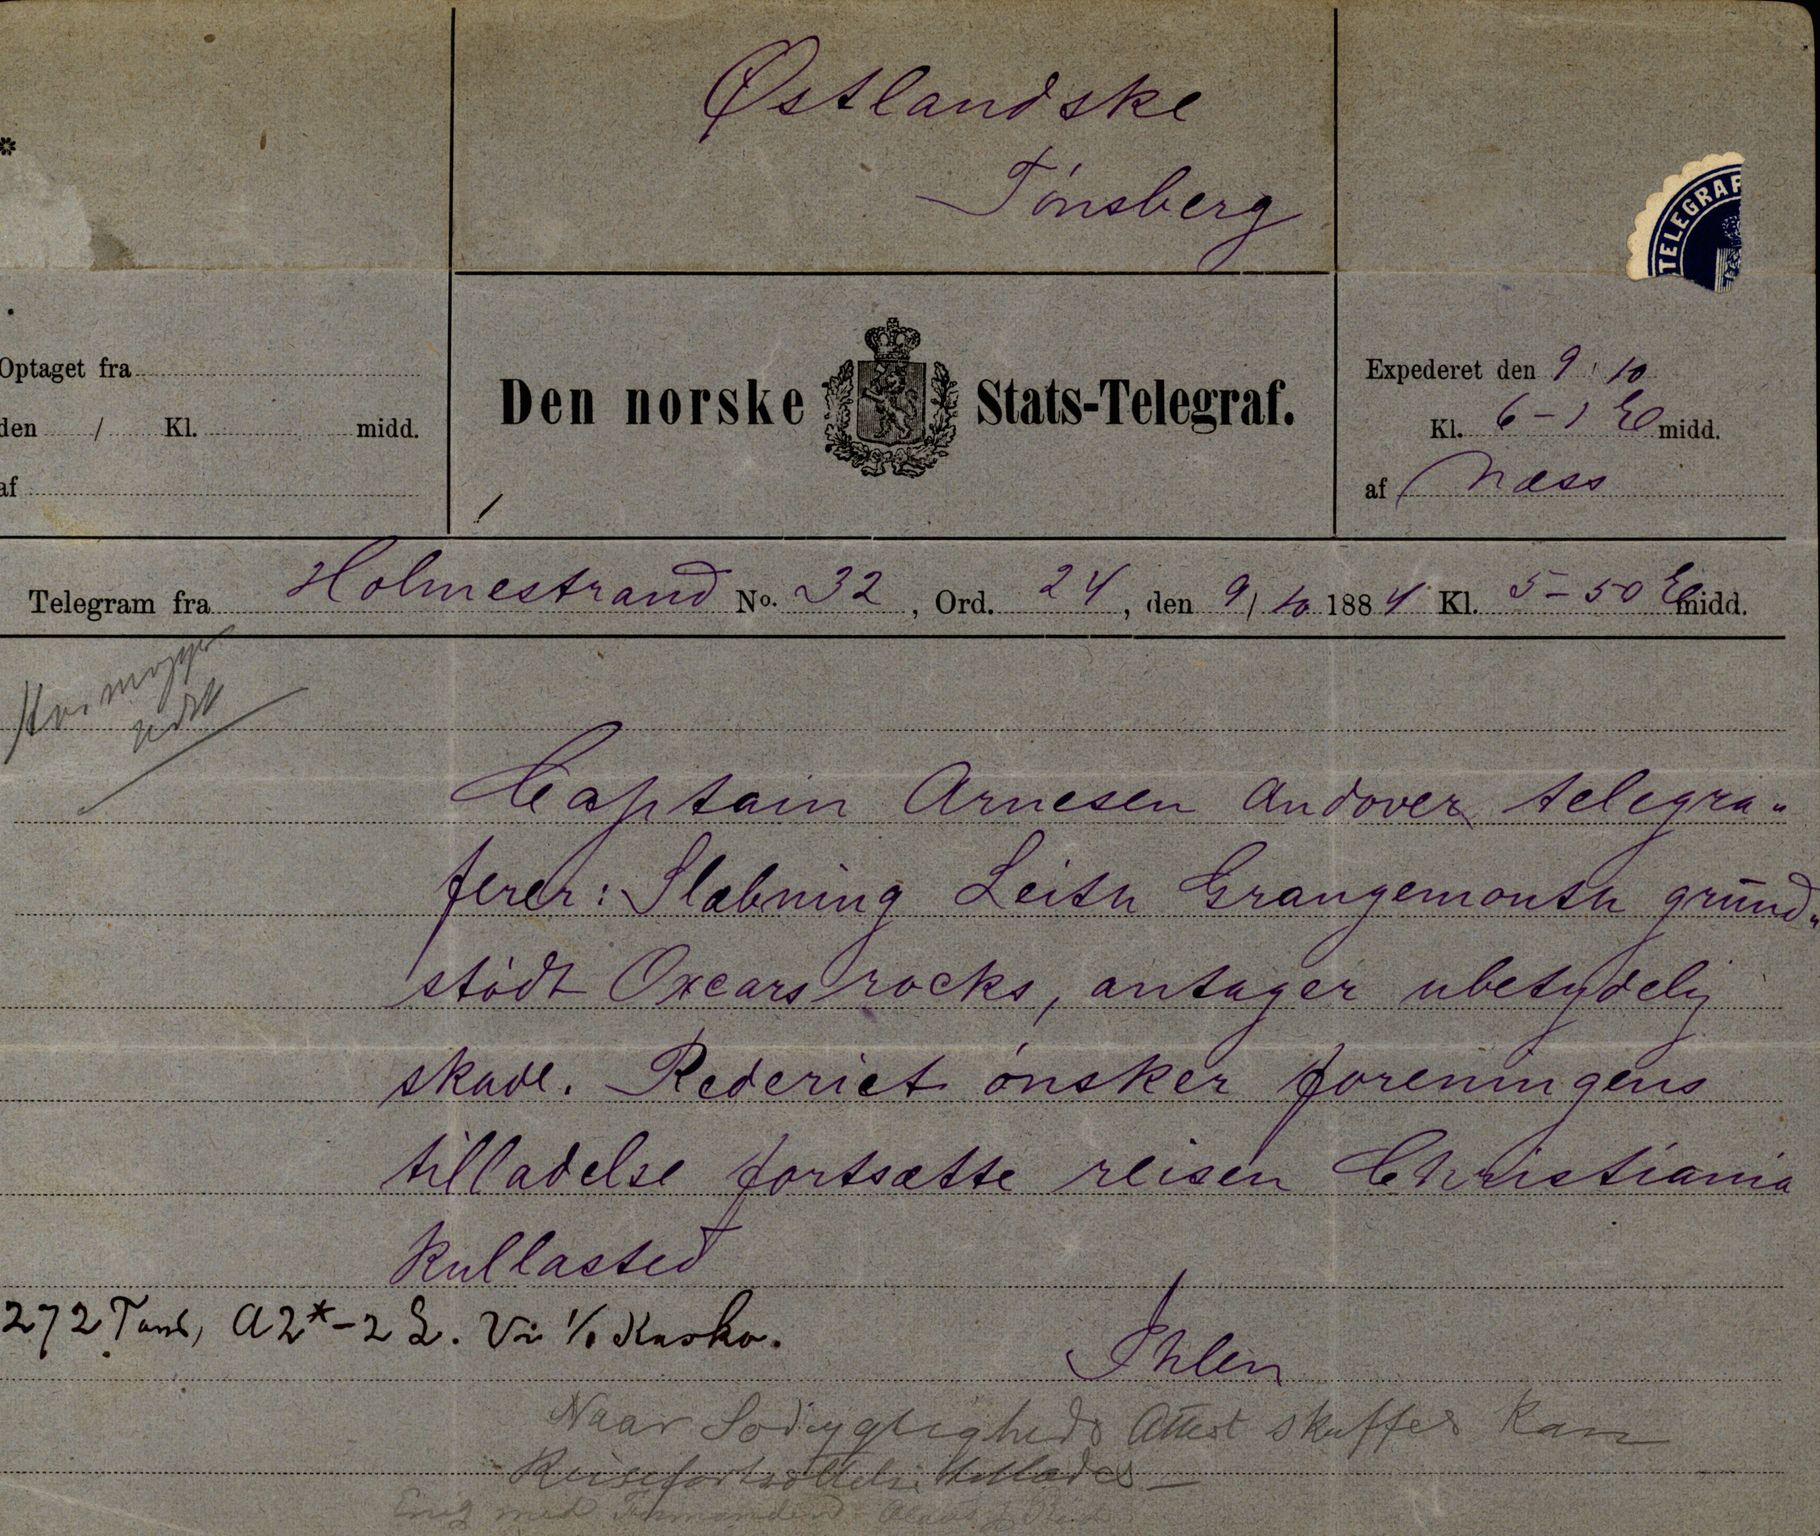 Østlandske
Tønsberg
TELEGRAF
Optaget fra
den / Kl. midd.
af
Den norske Stats-Telegraf.
Expederet den 9/10
Kl. 6-1 E midd.
af Næss
Telegram fra Holmestrand No. 32, Ord. 24, den 9/10 1884 Kl. 5-50 E midd.
Captain Arnesen Andover telegra-
ferer: Slæbning Leith Grangemouth grund-
stødt Oxcars rocks, antager ubetydelig
skade. Rederiet ønsker foreningens
tilladelse fortsætte reisen Christiania
kullasted
272 Tons, A2*-2 L. Vi 1/1 Kasko.
Ihlen
Naar Sødygtigheds Attest skaffes kan
Reisefortsættelse tillades
Enig med Formanden